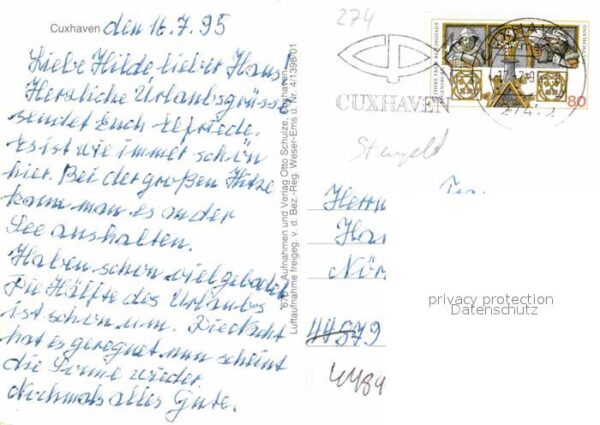 Cuxhaven den 16.7.95
Liebe Hilde, lieber Hans
Herzliche Urlaubsgrüsse
sendet Euch Elfriede.
Es ist wie immer schön
hier. Bei der großen Hitze
kann man es an der
See aushalten.
Haben schon viel gebadet
Die Hälfte des Urlaubs
ist schon um. Die Nacht
hat es geregnet nun scheint
die Sonne wieder.
Nochmals alles Gute.
Aufnahmen und Verlag Otto Schulze, Cuxhaven
Luftaufnahme freigeg. v. d. Bez.-Reg. Weser-Ems u. Nr. 4/1398/01
274
CUXHAVEN
80
Herrn
Han
Nör
44579
privacy protection
Datenschutz